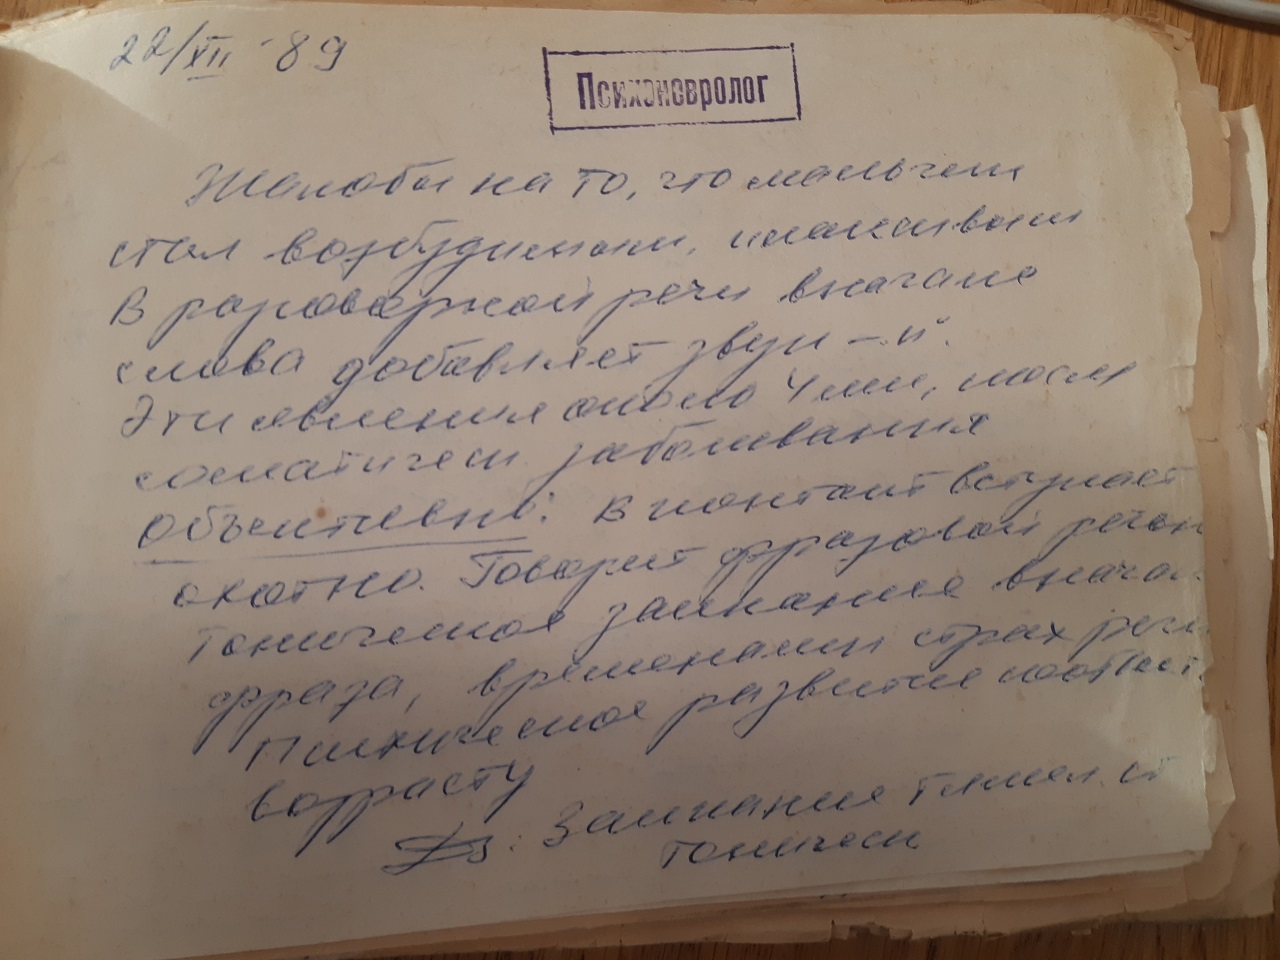 22/XII -89
Психоневролог
Жалобы на то, что мальчик
стал возбудимым, плаксивым
В разговорной речи вначале
слова добавляет звук – и.
Эти явления около 4 мес, после
соматическ. заболевания
Объективно: В контакт вступает
охотно. Говорит фразовой речью
тоническое заикание вначале
фраза, временами страх речи
Психическое развитие соответ.
возрасту
Ds: Заикание тяжел. ст
тоническ